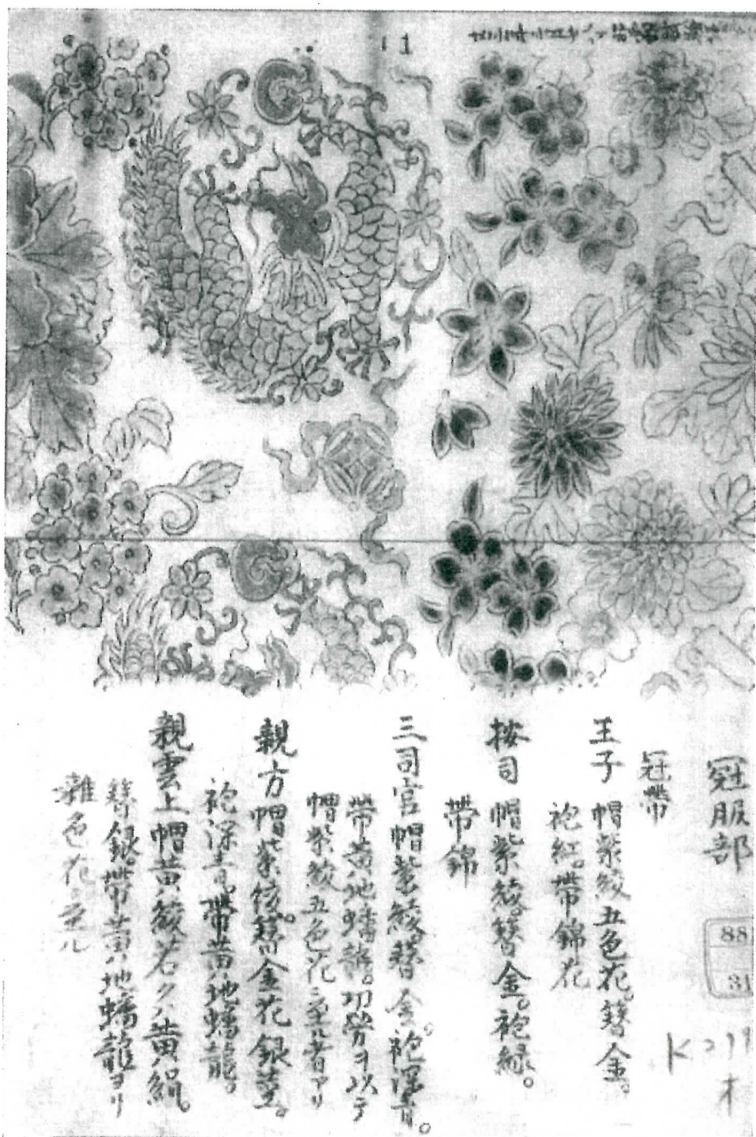 1
冠服部
冠帶
王子 帽紫綾五色花。簪金。
袍紅。帶錦花
按司 帽紫綾。簪金。袍緑。
帶錦
三司官 帽紫綾。簪金。袍深青。
帶黄地蟠龍。功勞ヲ以テ
帽紫綾五色花ニ至ル者アリ
親方 帽紫綾。簪金花銀莖。
袍深青。帶黄地蟠龍。
親雲上 帽黄綾若クハ黄絹。
簪銀。帶黄地蟠龍ヨリ
雜色花ニ至ル
88
31
K